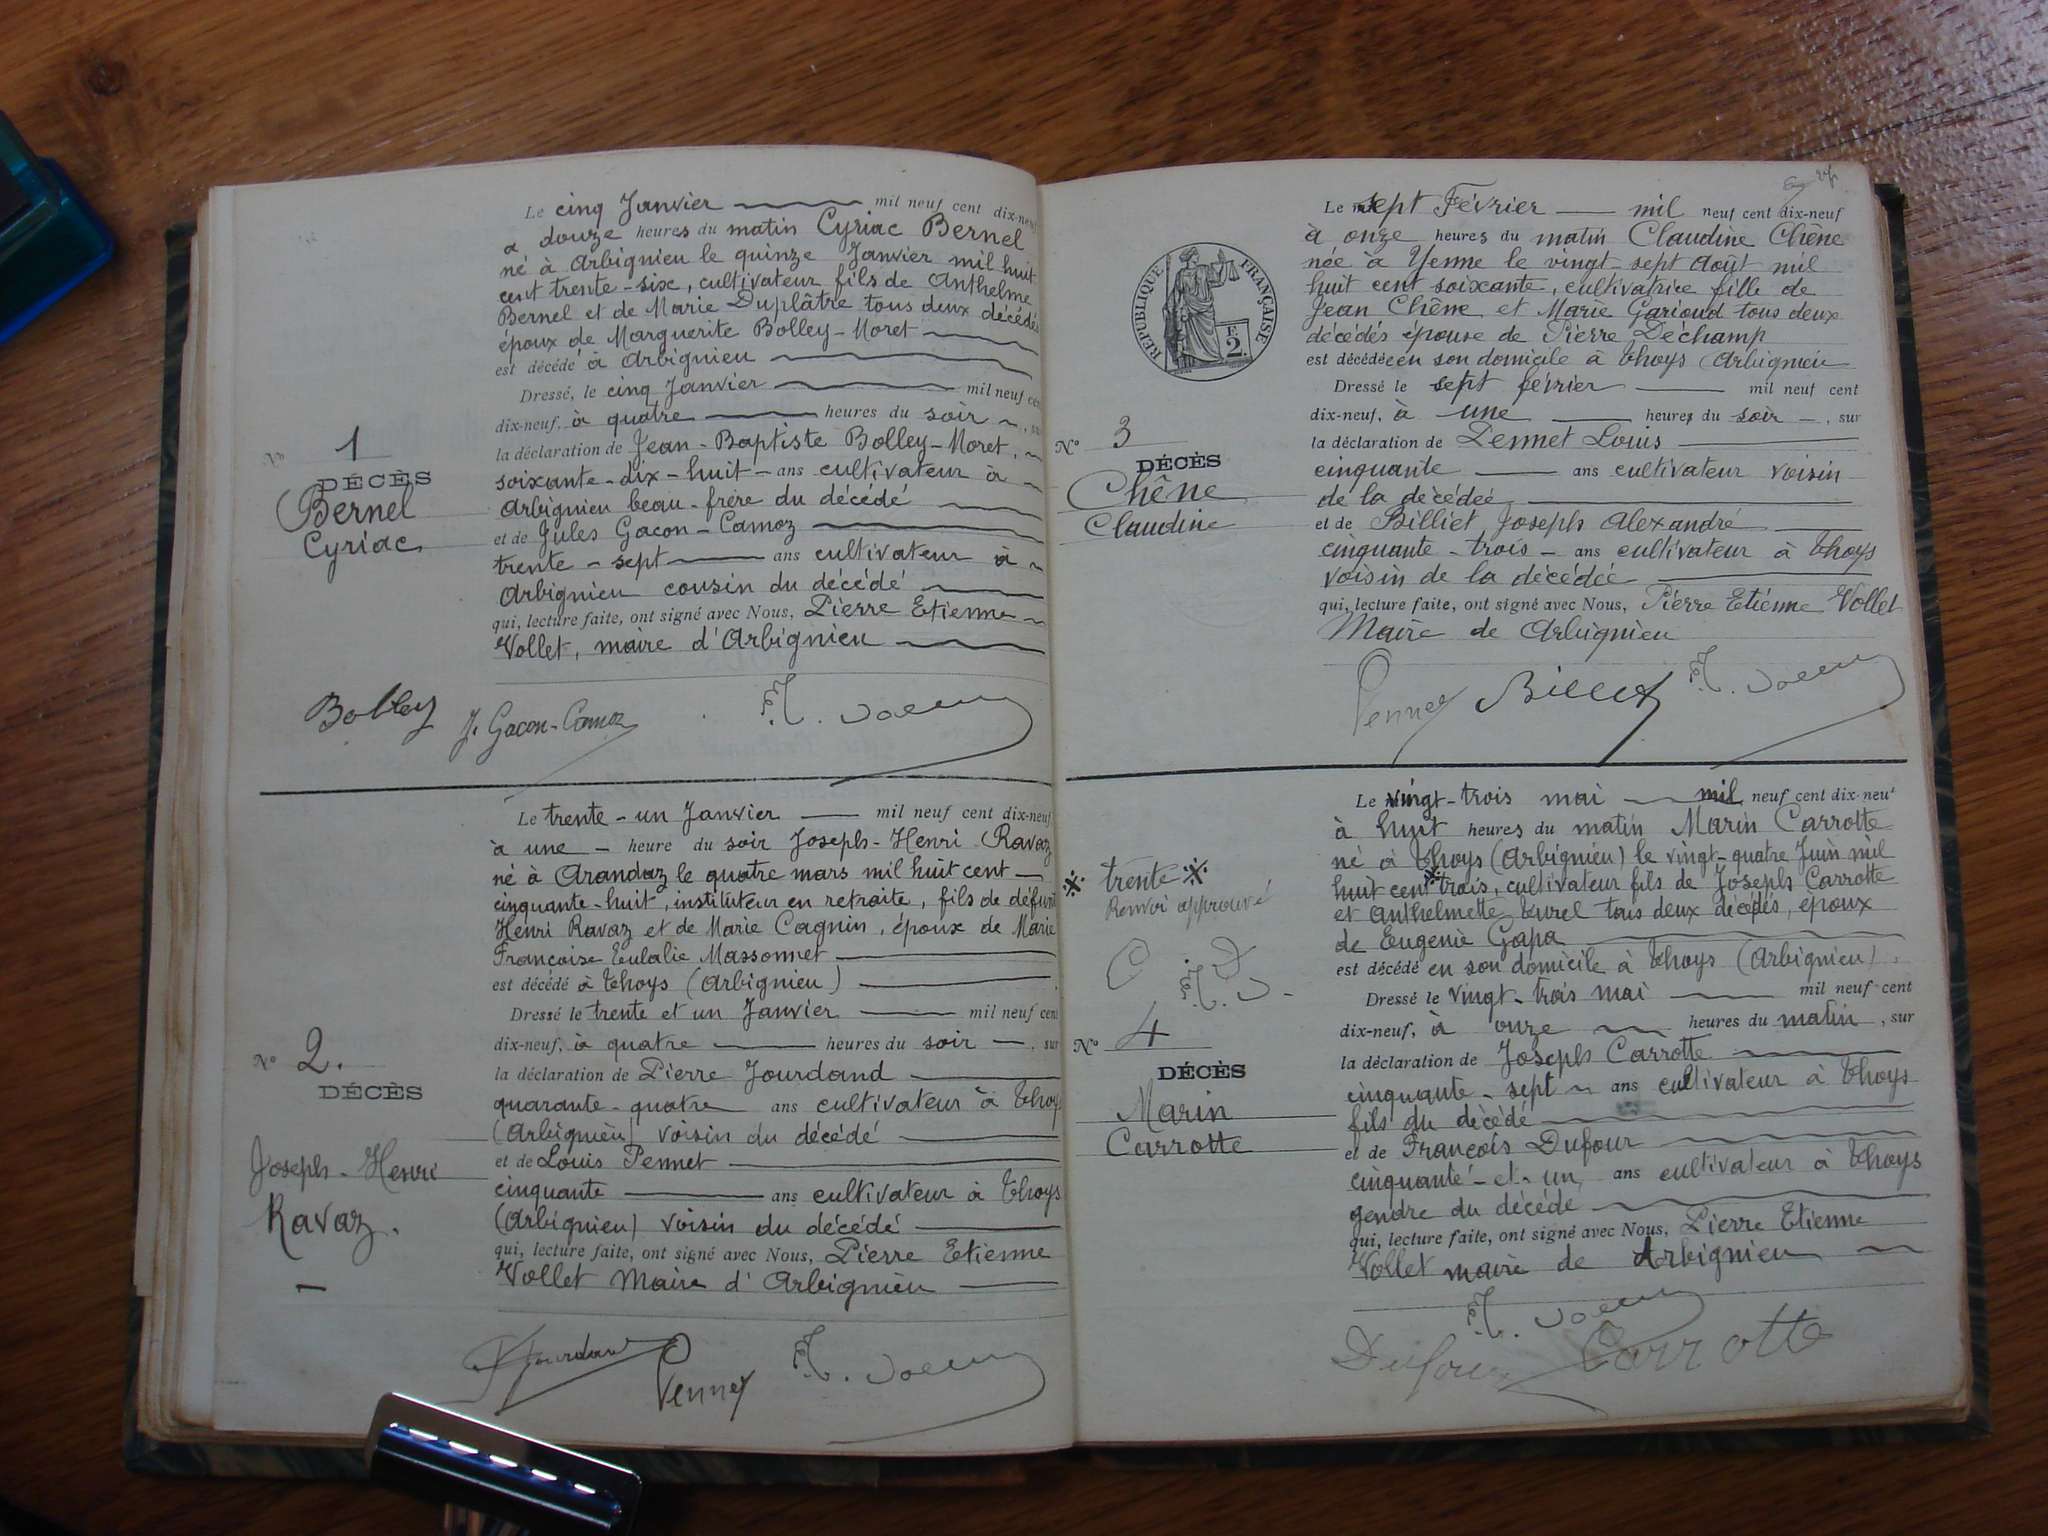 Le cinq Janvier mil neuf cent dix-neuf
à douze heures du matin Cyriac Bernel
né à Arbignieu le quinze Janvier mil huit
cent trente-six, cultivateur fils de Anthelme
Bernel et de Marie Duplâtre tous deux décédés
époux de Marguerite Bolley-Moret
est décédé à Arbignieu
Dressé, le cinq Janvier mil neuf cent
dix-neuf, à quatre heures du soir, sur
la déclaration de Jean-Baptiste Bolley-Moret,
soixante-dix-huit ans cultivateur à
Arbignieu beau-frère du décédé
et de Jules Gacon-Camoz
trente-sept ans cultivateur à
Arbignieu cousin du décédé
qui, lecture faite, ont signé avec Nous, Pierre Etienne
Vollet, maire d'Arbignieu
No 1
DÉCÈS
Bernel
Cyriac
Bolley J. Gacon-Camoz
Le trente-un Janvier mil neuf cent dix-neuf
à une heure du soir Joseph-Henri Ravaz
né à Arandaz le quatre mars mil huit cent
cinquante-huit, instituteur en retraite, fils de défunt
Henri Ravaz et de Marie Cagnin, époux de Marie
Françoise Eulalie Massonnet
est décédé à Thoys (Arbignieu)
Dressé le trente et un Janvier mil neuf cent
dix-neuf, à quatre heures du soir, sur
la déclaration de Pierre Jourdand
quarante-quatre ans cultivateur à Thoys
(Arbignieu) voisin du décédé
et de Louis Pennet
cinquante ans cultivateur à Thoys
(Arbignieu) voisin du décédé
qui, lecture faite, ont signé avec Nous, Pierre Etienne
Vollet Maire d'Arbignieu
No 2.
DÉCÈS
Joseph-Henri
Ravaz.
Jourdand Pennet
RÉPUBLIQUE FRANÇAISE
2
Le sept Février mil neuf cent dix-neuf
à onze heures du matin Claudine Chêne
née à Yenne le vingt-sept Août mil
huit cent soixante, cultivatrice fille de
Jean Chêne et Marie Garioud tous deux
décédés épouse de Pierre Déchamp
est décédée en son domicile à Thoys (Arbignieu
Dressé le sept février mil neuf cent
dix-neuf, à une heures du soir, sur
la déclaration de Pennet Louis
cinquante ans cultivateur voisin
de la décédée
et de Billiet Joseph Alexandre
cinquante-trois ans cultivateur à Thoys
voisin de la décédée
qui, lecture faite, ont signé avec Nous, Pierre Etienne Vollet
Maire de Arbignieu
No 3
DÉCÈS
Chêne
Claudine
Pennet Billiet
Le vingt-trois mai mil neuf cent dix-neuf
à huit heures du matin Marin Carrotte
né à Thoys (Arbignieu) le vingt-quatre Juin mil
huit cent ※ trois, cultivateur fils de Joseph Carrotte
et Anthelmette Hurel tous deux décédés, époux
de Eugenie Gapa
est décédé en son domicile à Thoys (Arbignieu).
Dressé le vingt-trois mai mil neuf cent
dix-neuf, à onze heures du matin, sur
la déclaration de Joseph Carrotte
cinquante-sept ans cultivateur à Thoys
fils du décédé
et de François Dufour
cinquante-et-un ans cultivateur à Thoys
gendre du décédé
qui, lecture faite, ont signé avec Nous, Pierre Etienne
Vollet maire de Arbignieu
※ trente ※
Renvoi approuvé
C. D.
No 4
DÉCÈS
Marin
Carrotte
Dufour Carrotte